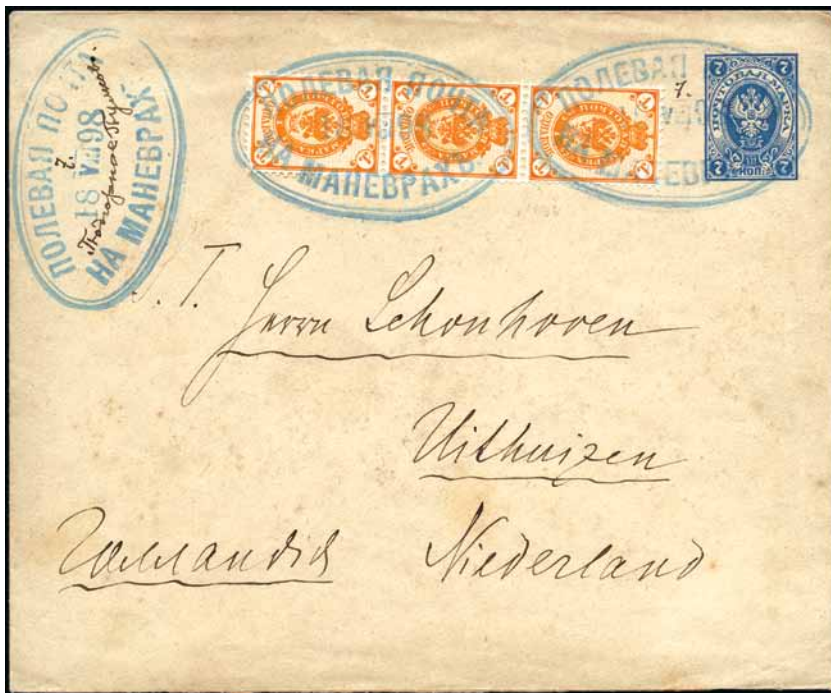 ПОЛЕВАЯ ПОЧТА
7.
18 VII 98
НА МАНЕВРАХ
ПОЛЕВАЯ ПОЧТА
НА МАНЕВРАХЪ
ПОЛЕВАЯ
7.
7 7
ПОЧТОВАЯ МАРКА
7 КОП. 7
S. T.
Herrn Schonhoven
Uithuizen
Голландія Niederland